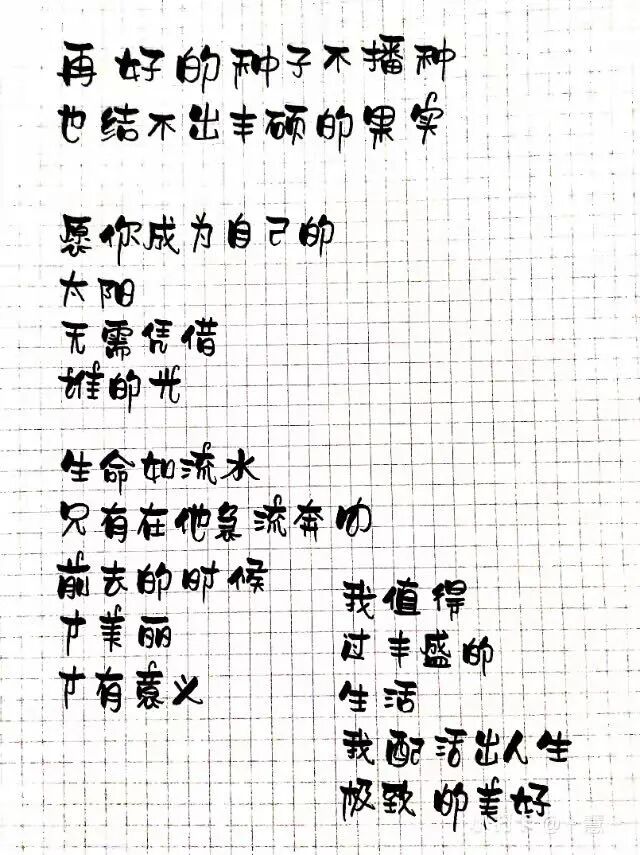 再好的种子不播种
也结不出丰硕的果实
愿你成为自己的
太阳
无需凭借
谁的光
生命如流水
只有在他急流奔向
前去的时候
才美丽
才有意义
我值得
过丰盛的
生活
我配活出人生
极致的美好